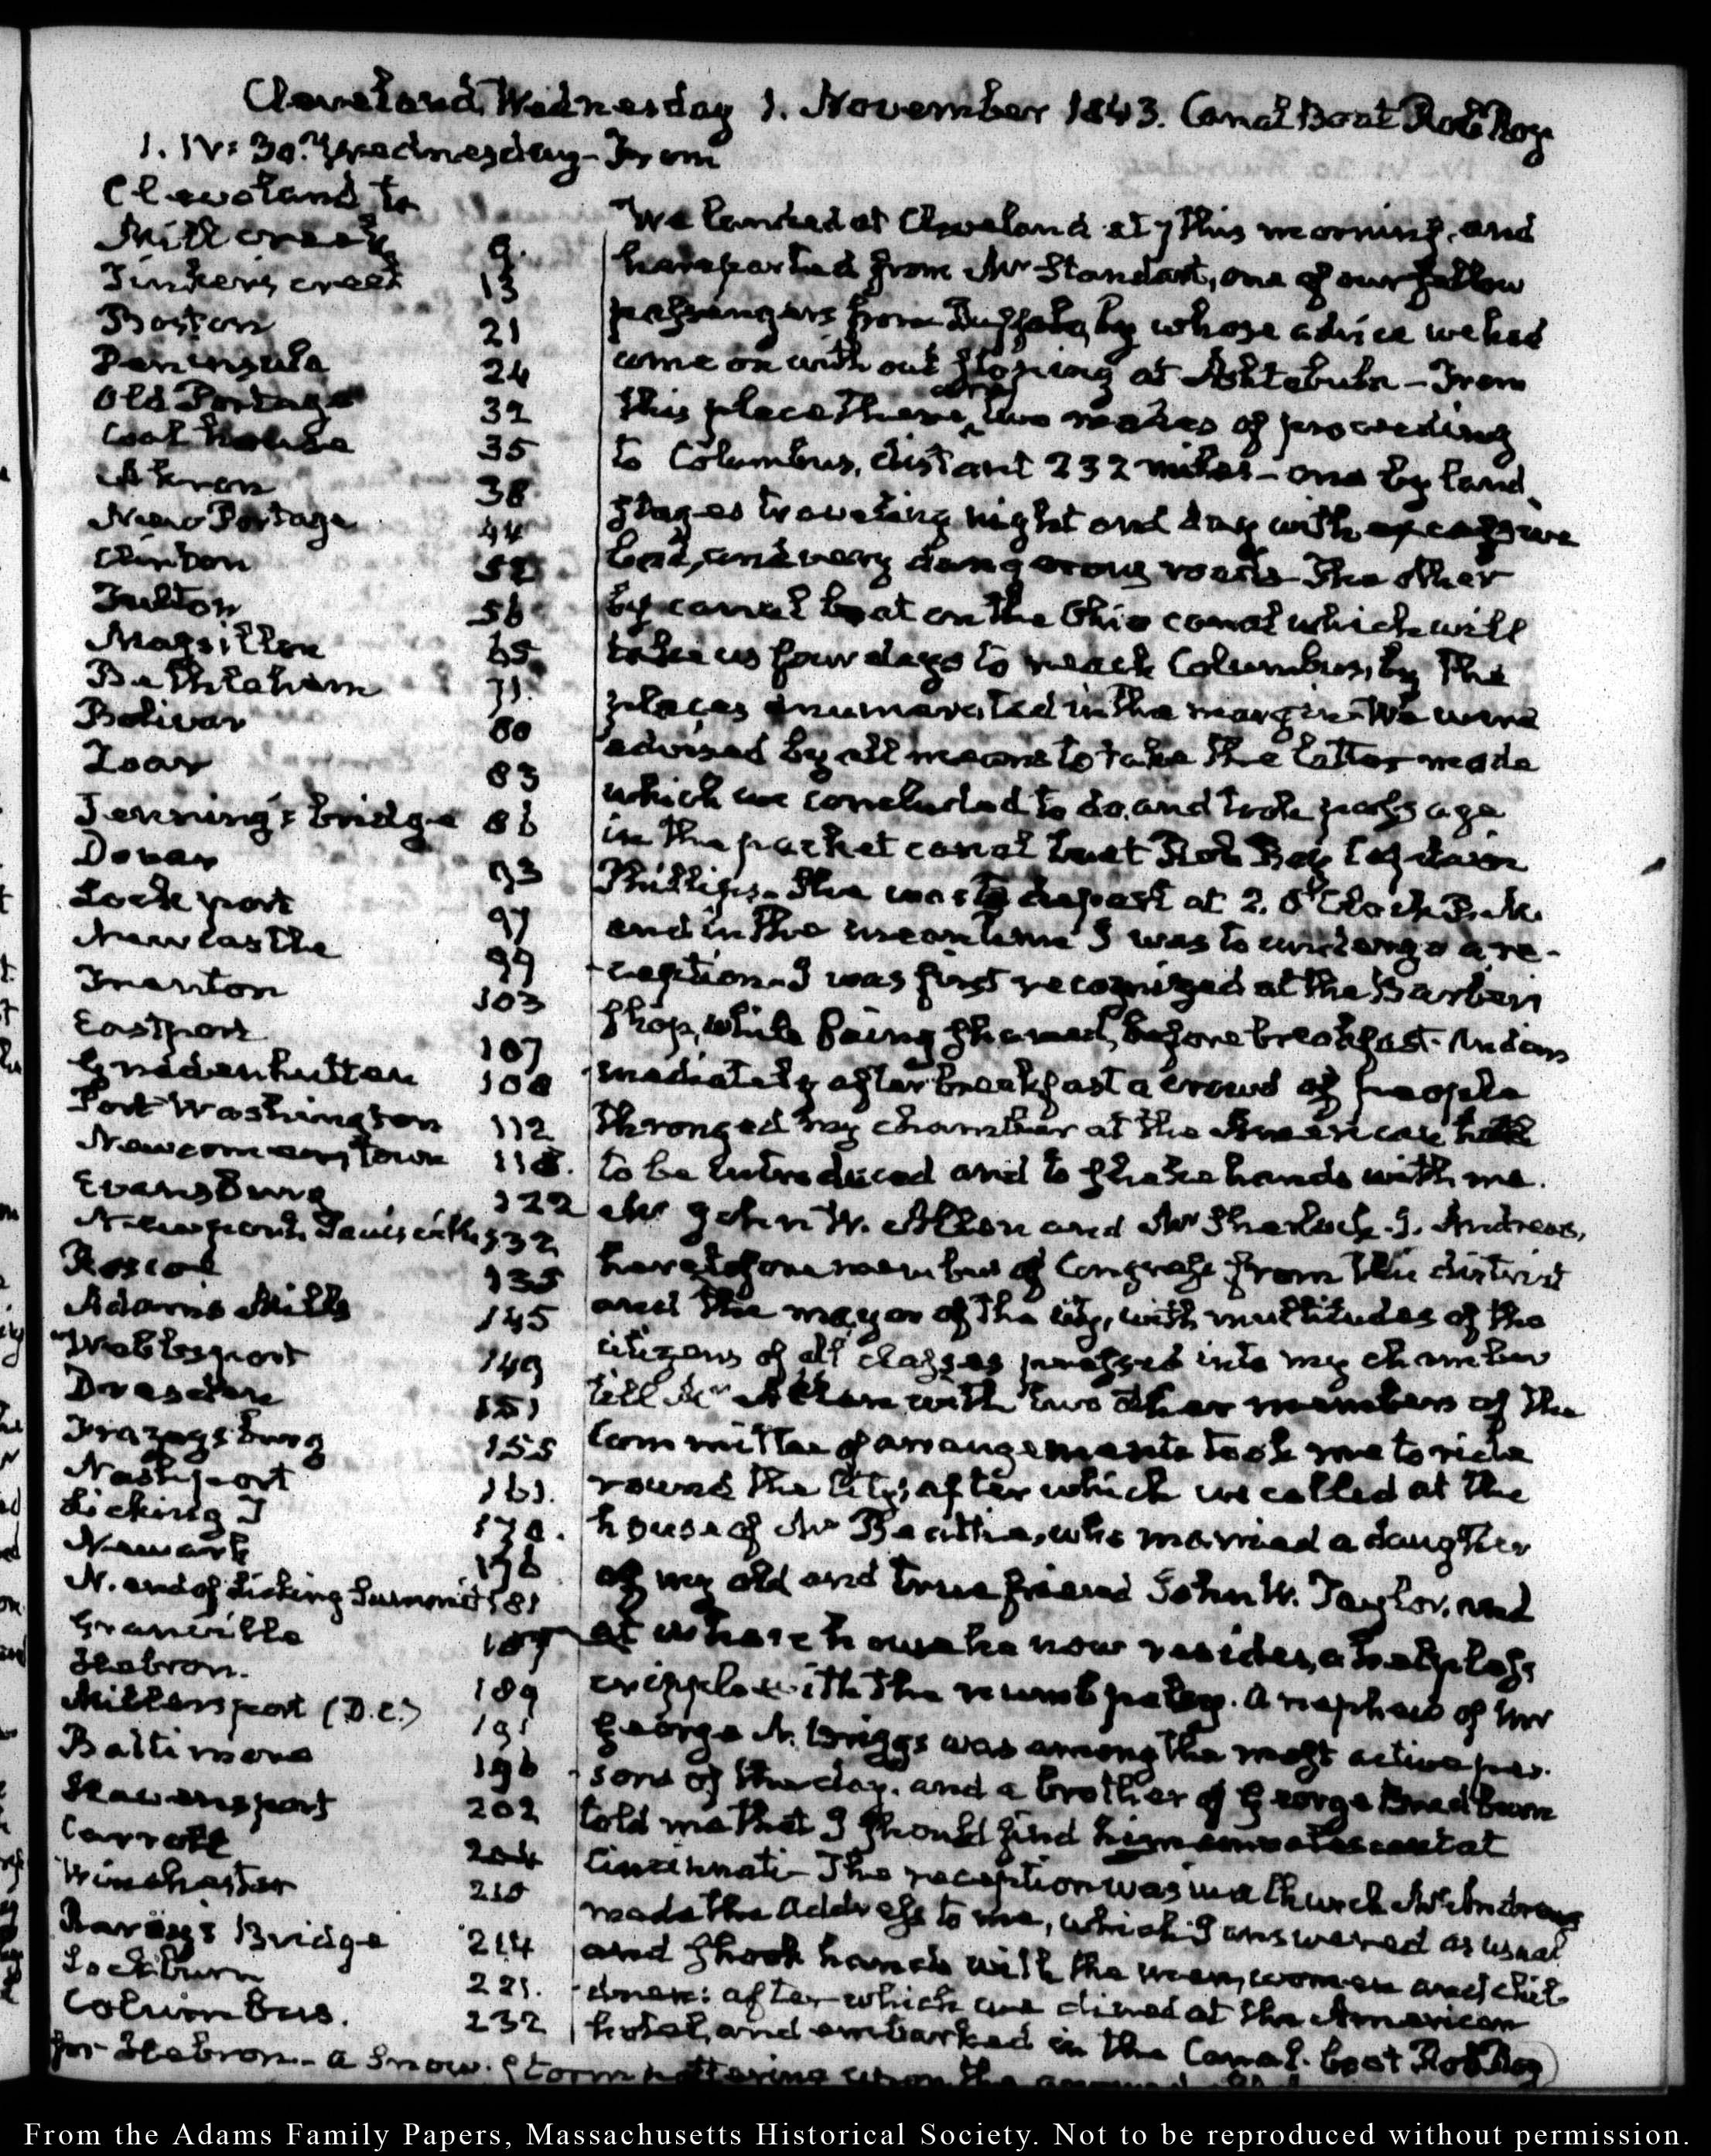 Cleveland Wednesday 1. November 1843. Canal Boat Rob Roy
1. IV: 30. Wednesday - From
Cleveland to
Mill creek 9.
Tinker's creek 13
Boston 21
Peninsula 24
Old Portage 32
Coal house 35
Akron 38
New Portage 44
Clinton 52
Fulton 56
Massillon 65
Bethlehem 71.
Bolivar 80
Zoar 83
Jenning's bridge 86
Dover 93
Lockport 97
Newcastle 99
Trenton 103
Eastport 107
Gnadenhutten 108
Port Washington 112
Newcomerstown 118.
Evansburg 122
Newport, Lewisville 132
Roscoe 135
Adams Mills 145
Webbsport 149
Dresden 151
Frazeysburg 155
Nashport 161.
Licking 170.
Newark 176
N. end of Licking Summit 181
Granville 187
Hebron. 189
Millersport (D.C.) 191
Baltimore 196
Havensport 202
Carroll 204
Winchester 210
Rarey's Bridge 214
Lockburn 221.
Columbus. 232
We landed at Cleveland at 7 this morning, and
here parted from Mr Standart, one of our fellow
passengers from Buffalo, by whose advice we had
come on without stoping at Ashtebula - From
this place there are two modes of proceeding
to Columbus, distant 232 miles - one by land
stages traveling night and day with excessive
bad, and very dangerous roads - The other
by canal boat on the Ohio canal which will
take us four days to reach Columbus, by the
places enumerated in the margin - We were
advised by all means to take the latter mode
which we concluded to do, and took passage
in the packet canal boat Rob Roy Captain
Phillips. She was to depart at 2. O'Clock P.M.
and in the mean time I was to undergo a re-
-ception - I was first recognized at the Barber's
shop, while being shaved, before breakfast - And im
mediately after breakfast a crowd of people
thronged my chamber at the American hotel
to be introduced and to shake hands with me.
Mr John W. Allen and Mr Sherlock J. Andrews,
heretofore members of Congress from this district
and the mayor of the city, with multitudes of the
citizens of all classes pressed into my chamber
till Mr Allen with two other members of the
Committee of arrangements took me to ride
round the City; after which we called at the
house of Mr Beattie, who married a daughter
of my old and true friend John W. Taylor, and
at whose house he now resides, a helpless
cripple with the numb palsy. A nephew of Mr
George N. Briggs was among the most active per-
-sons of the day. and a brother of George Bradburn
told me that I should find him at
Cincinnati - The reception was in a Church Mr Andrews
made the Address to me, which I answered as usual
and shook hands with the men, women and chil-
-dren: after which we dined at the American
hotel, and embarked in the Canal. boat Rob Roy
for Hebron - a snow. storm pattering upon the
From the Adams Family Papers, Massachusetts Historical Society. Not to be reproduced without permission.